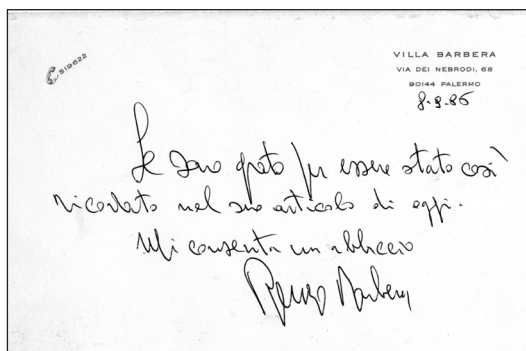 519622
VILLA BARBERA
VIA DEI NEBRODI, 68
90144 PALERMO
8-9-86
Le sono grato per essere stato così
ricordato nel suo articolo di oggi.
Mi consenta un abbraccio
Renzo Barbera